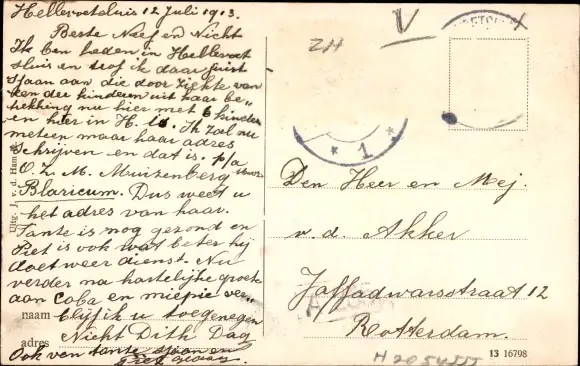 Hellevoetsluis 12 Juli 1913.
Beste Neef en Nicht
Ik ben heden in Hellevoet
sluis en trof ik daar juist
Sjaan aan die door ziekte van
een der kinderen uit haar be„
trekking nu hier met 6 kinder
en hier in H. is. Ik zal nu
meteen maar haar adres
Schrijven en dat is. p/a
O. Z. M. Muizenberg
Blaricum. Dus weet u
het adres van haar.
Tante is nog gezond en
Piet is ook wat beter hij
doet weer dienst. Nu
verder na hartelijke groet
aan Coba en miepie ver„
naam blijf ik u toegenegen
Nicht Dith Dag
adres
Ook van tante Sjaan en
Uitg. J. v. d. Ham
ZH
V
* 1 *
Den Heer en Mej.
v. d. Akker
Jaffadwarsstraat 12
Rotterdam.
H2054555
13 16798